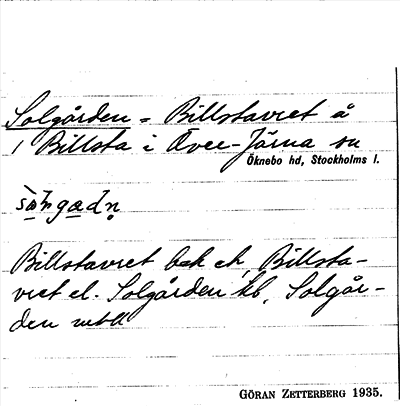 Solgården = Billstavret å
1 Billsta i Över-Järna sn
Öknebo hd, Stockholms l.
Billstavret bek ek, Billsta-
vret el. Solgården kb, Solgår-
den mtll
GÖRAN ZETTERBERG 1935.